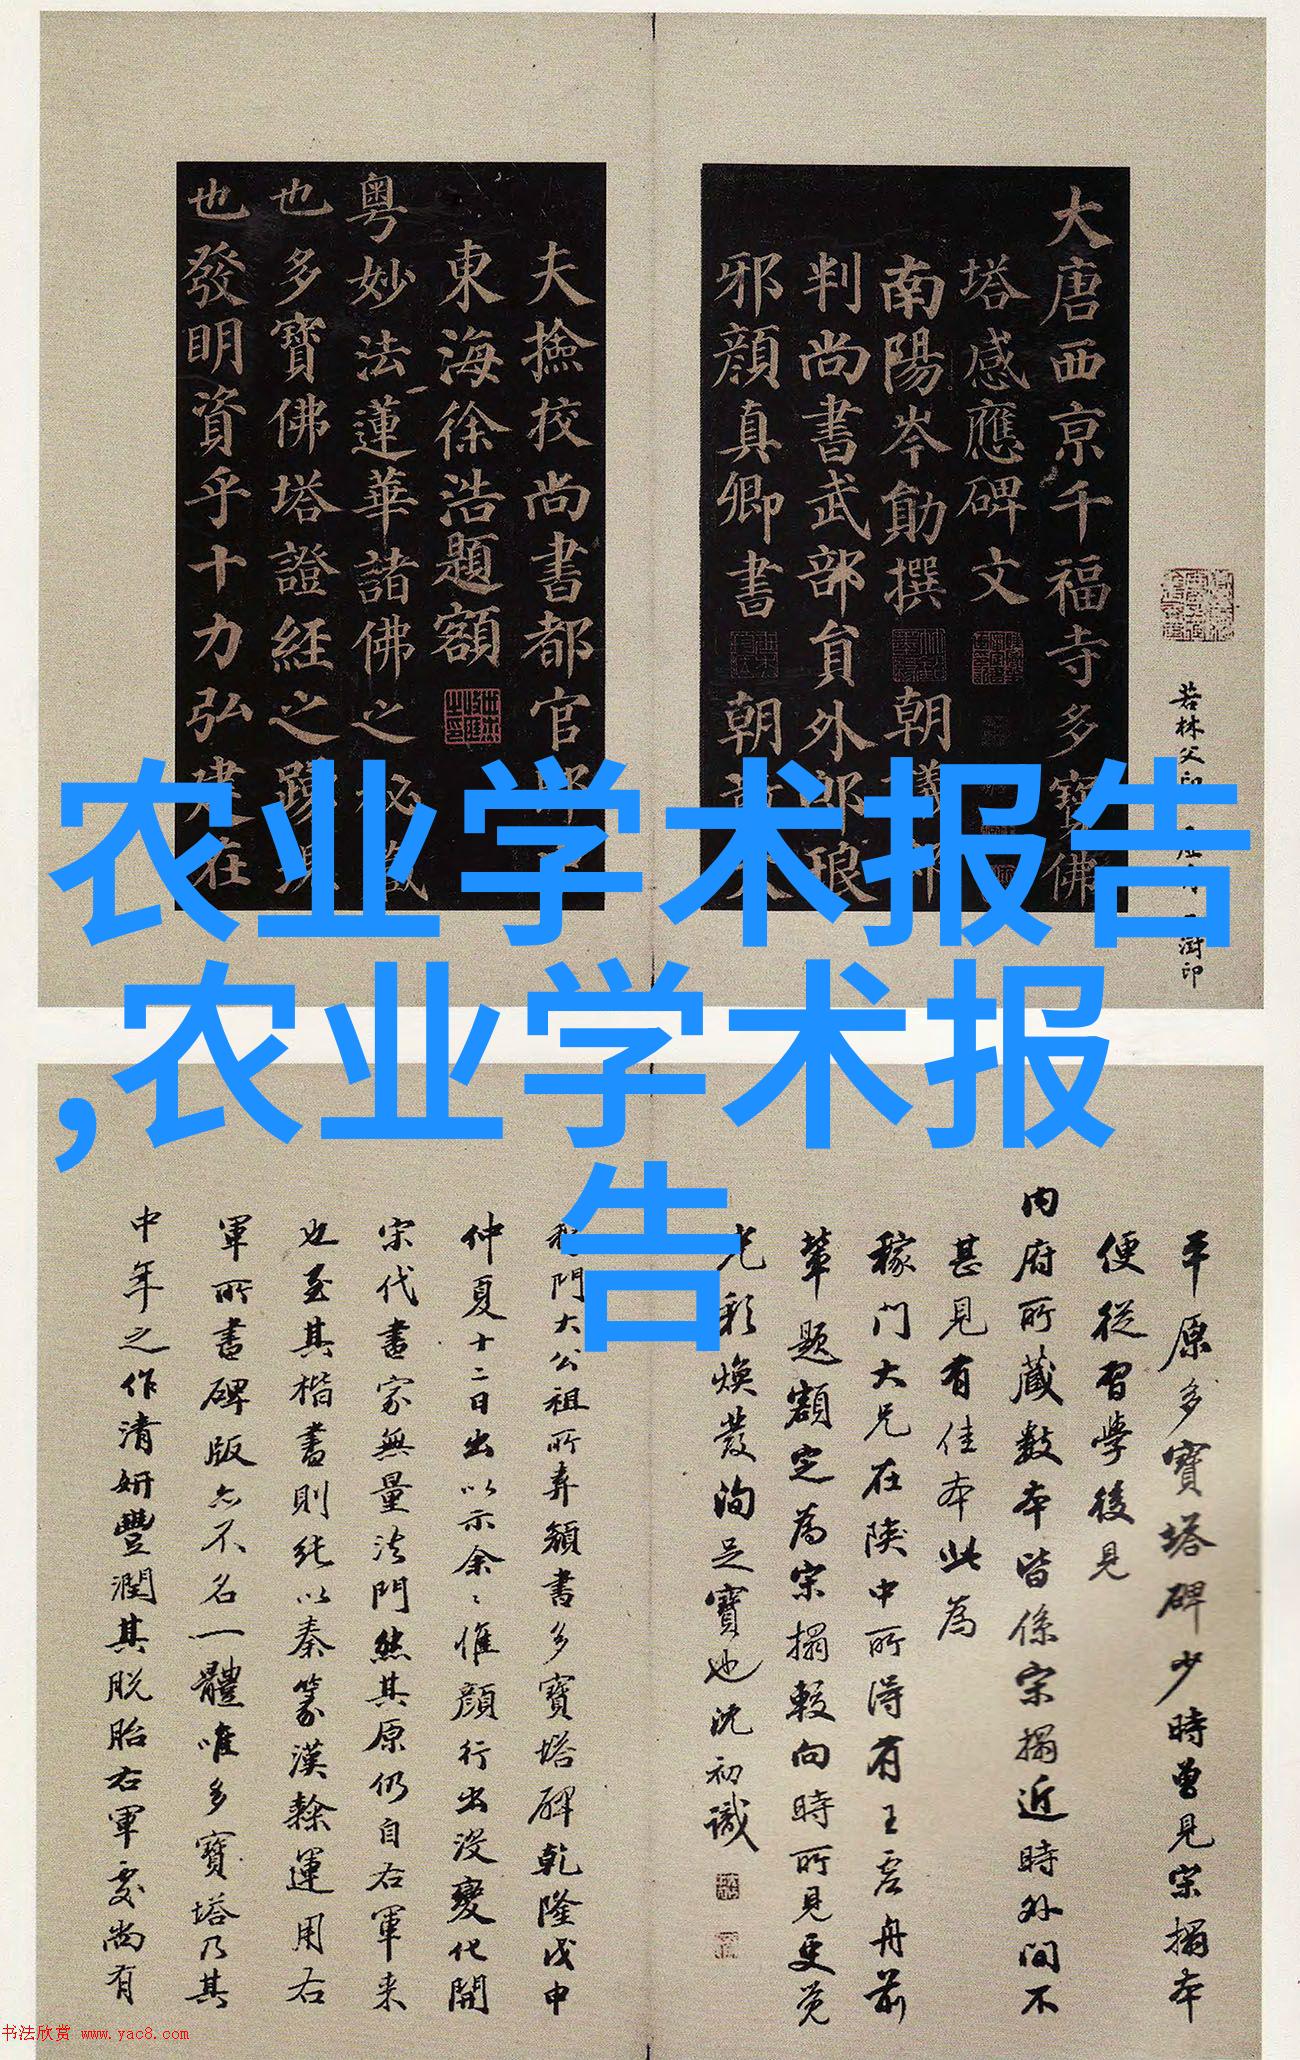 大唐西京千福寺多寶佛
塔感應碑文
南陽岑勛撰
朝議郎
判尚書武部員外郎琅
邪顏真卿書
朝
夫撿挍尚書都官郎
東海徐浩題額
粤妙法蓮華諸佛之秘藏
也多寶佛塔證經之踴現
也發明資乎十力弘建在
若林父印
澍印
农业学术报告
,农业学术报
告
平原多寶塔碑少時曾見宋搨本
便從習學後見
內府所藏數本皆係宋搨近時外間不
甚見有佳本此為
稼門大兄在陝中所得有王虛舟前
輩題額定為宋搨較向時所見更覺
光彩煥發洵足寶也沈初識
稼門大公祖所弆額書多寶塔碑乾隆戊申
仲夏十二日出以示余余惟顏行出沒變化開
宋代書家無量法門然其原仍自右軍來
也至其楷書則純以秦篆漢隸運用右
軍所書碑版亦不名一體唯多寶塔乃其
中年之作清妍豐潤其脫胎右軍處尚有
书法欣赏 www.yac8.com